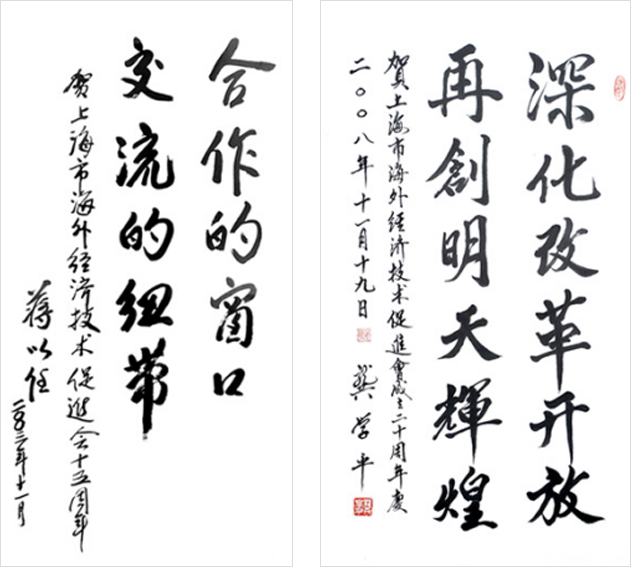 合作的窗口
交流的纽带
贺上海市海外经济技术促进会十五周年
蒋以任
二〇〇三年十一月
深化改革开放
再創明天輝煌
賀上海市海外经济技术促進會成立二十周年慶
二〇〇八年十一月十九日
龔学平